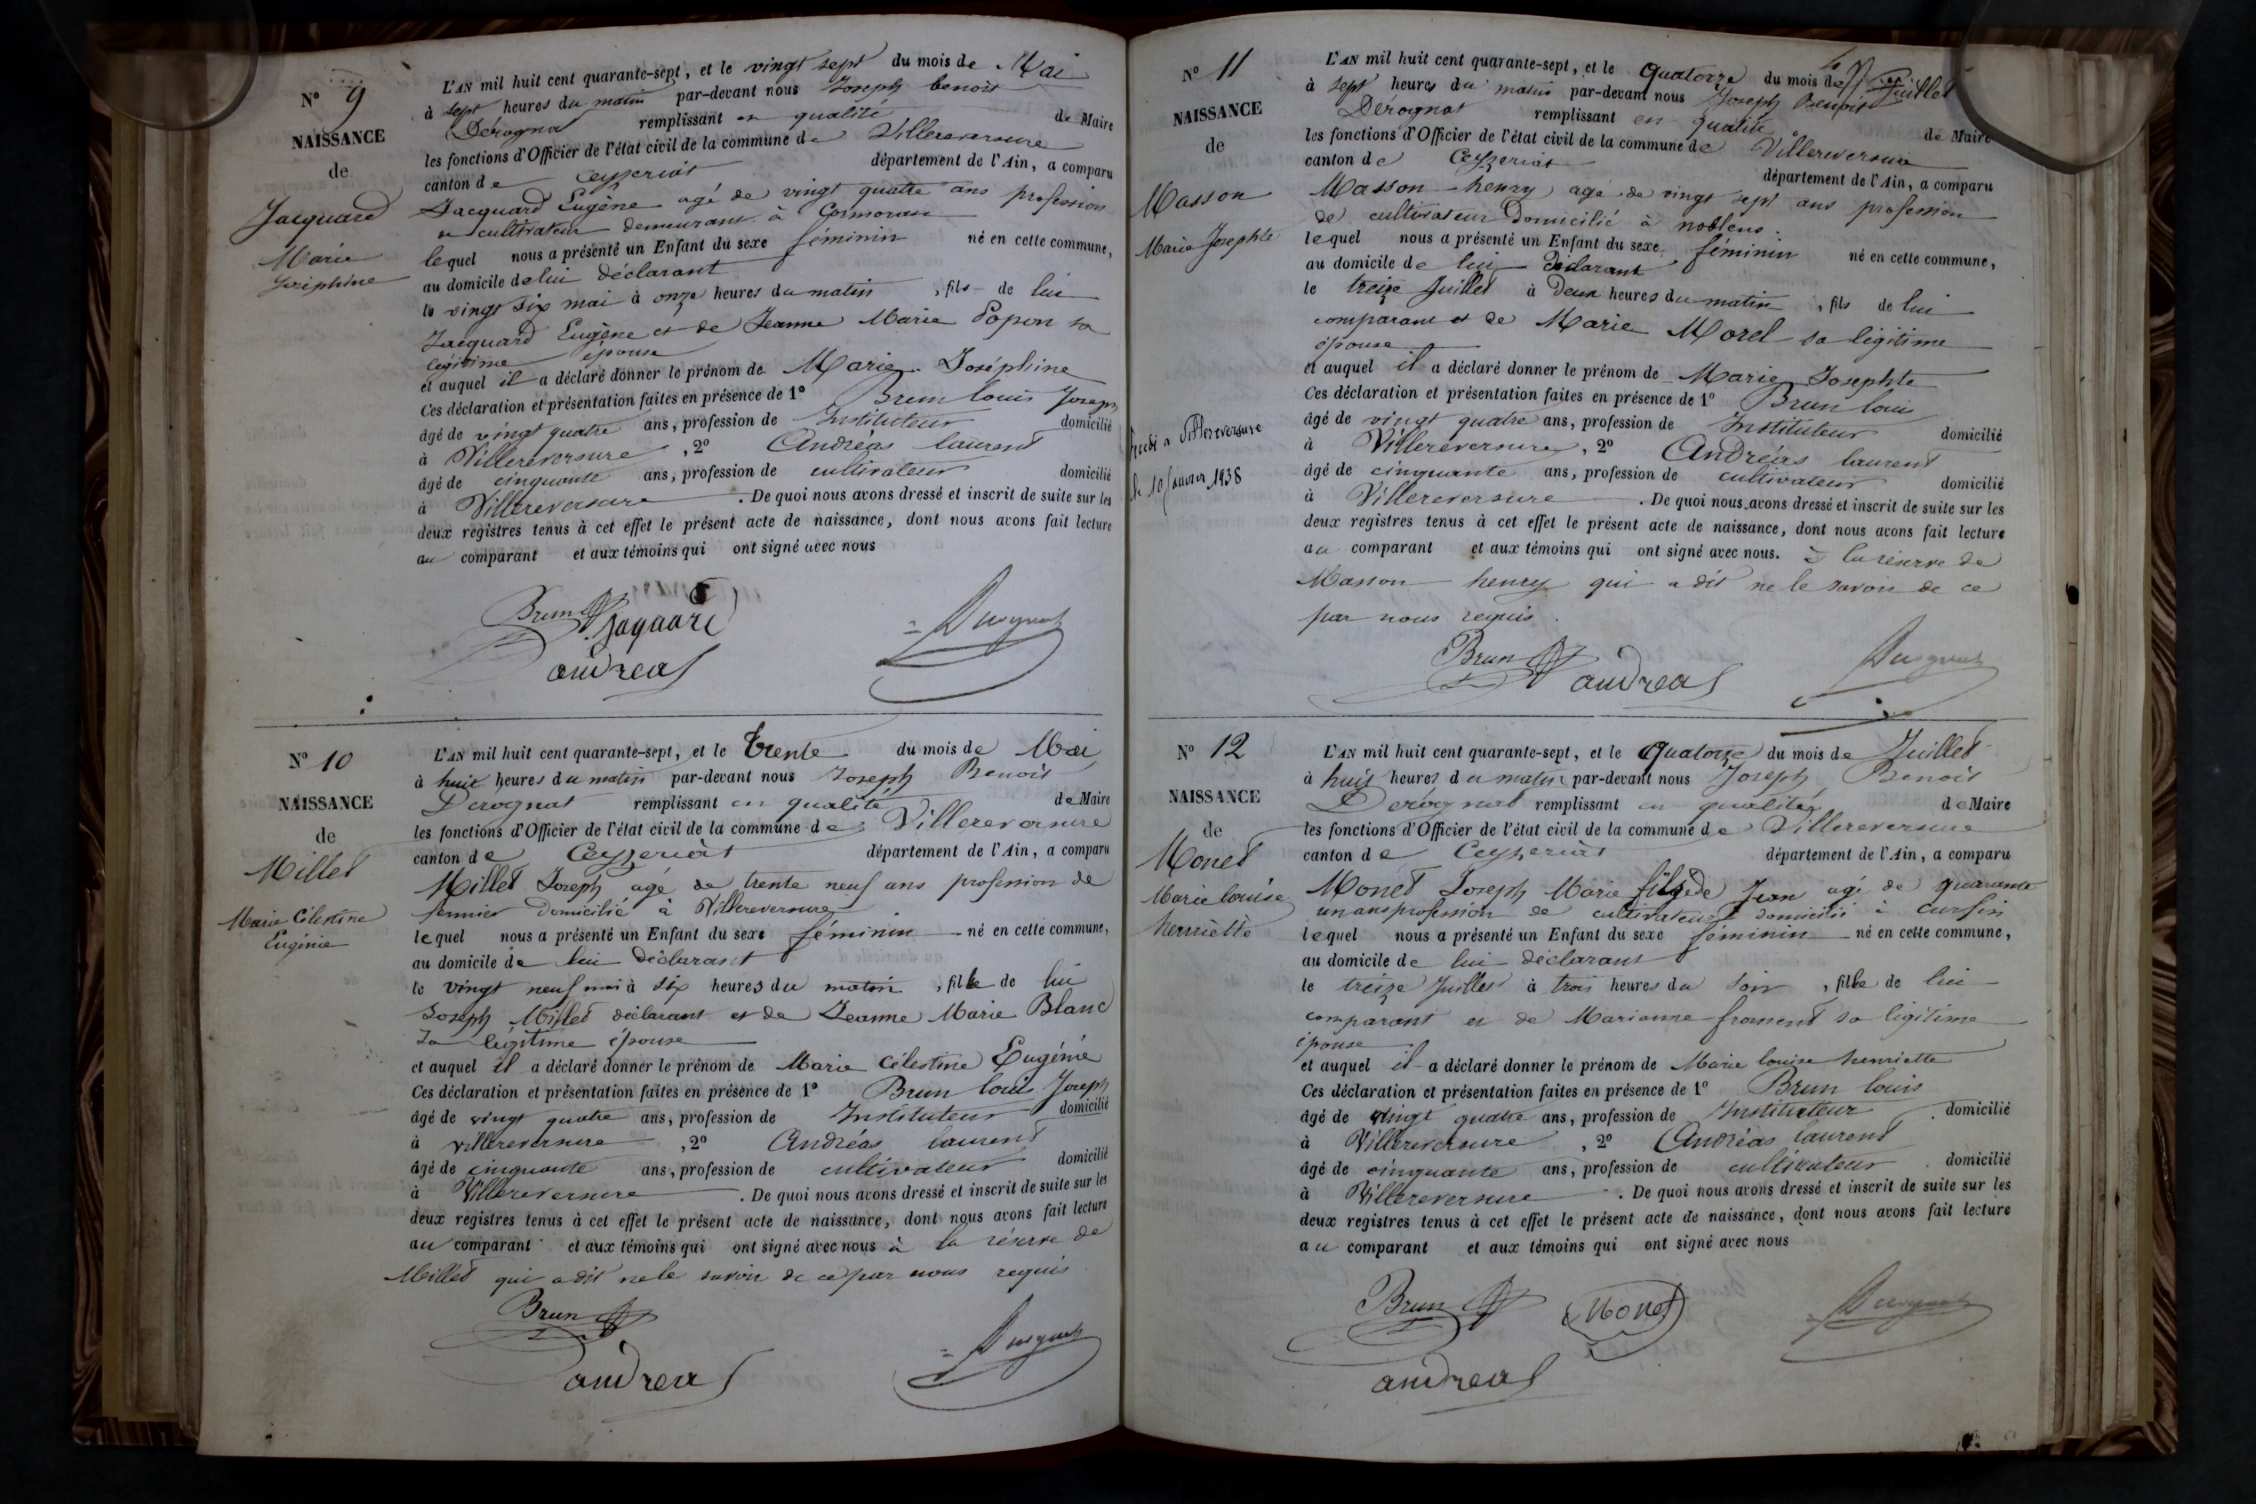 N° 9
NAISSANCE
de
Jacquard
Marie
Joséphine
L'AN mil huit cent quarante-sept, et le vingt sept du mois de Mai
à sept heures du matin par-devant nous Joseph benoit
Dérognat remplissant en qualité de Maire
les fonctions d'Officier de l'état civil de la commune de Villereversure
canton de Ceyzeriat département de l'Ain, a comparu
Jacquard Eugène agé de vingt quatre ans profession
de cultivateur demeurant à Cormoran
lequel nous a présenté un Enfant du sexe féminin né en cette commune,
au domicile de lui déclarant
le vingt six mai à onze heures du matin, fils de lui
Jacquard Eugène et de Jeanne Marie Popon sa
légitime épouse
et auquel il a déclaré donner le prénom de Marie Joséphine
Ces déclaration et présentation faites en présence de 1° Brun louis Joseph
âgé de vingt quatre ans, profession de Instituteur domicilié
à Villereversure, 2° Andréas laurent
âgé de cinquante ans, profession de cultivateur domicilié
à Villereversure. De quoi nous avons dressé et inscrit de suite sur les
deux registres tenus à cet effet le présent acte de naissance, dont nous avons fait lecture
au comparant et aux témoins qui ont signé avec nous
Brun
Jaquard
Derognat
andreas
N° 10
NAISSANCE
de
Millet
Marie Célestine
Eugénie
L'AN mil huit cent quarante-sept, et le trente du mois de Mai
à huit heures du matin par-devant nous Joseph Benoit
Derognat remplissant en qualité de Maire
les fonctions d'Officier de l'état civil de la commune de Villereversure
canton de Ceyzeriat département de l'Ain, a comparu
Millet Joseph agé de trente neuf ans profession de
fermier domicilié à Villereversure
lequel nous a présenté un Enfant du sexe féminin né en cette commune,
au domicile de lui déclarant
le vingt neuf mai à six heures du matin, fille de lui
Joseph Millet déclarant et de Jeanne Marie Blanc
sa légitime épouse
et auquel il a déclaré donner le prénom de Marie Célestine Eugénie
Ces déclaration et présentation faites en présence de 1° Brun louis Joseph
âgé de vingt quatre ans, profession de Instituteur domicilié
à Villereversure, 2° Andréas laurent
âgé de cinquante ans, profession de cultivateur domicilié
à Villereversure. De quoi nous avons dressé et inscrit de suite sur les
deux registres tenus à cet effet le présent acte de naissance, dont nous avons fait lecture
au comparant et aux témoins qui ont signé avec nous à la réserve de
Millet qui a dit ne le savoir de ce par nous requis
Brun
Derognat
andreas
N° 11
NAISSANCE
de
Masson
Marie Josephte
à Villereversure
le 10 Janvier 1938
L'AN mil huit cent quarante-sept, et le quatorze du mois de Juillet
à sept heures du matin par-devant nous Joseph Benoit
Dérognat remplissant en qualité de Maire
les fonctions d'Officier de l'état civil de la commune de Villereversure
canton de Ceyzeriat département de l'Ain, a comparu
Masson henry agé de vingt sept ans profession
de cultivateur domicilié à noblens.
lequel nous a présenté un Enfant du sexe féminin né en cette commune,
au domicile de lui déclarant
le treize Juillet à deux heures du matin, fils de lui
comparant et de Marie Morel sa légitime
épouse
et auquel il a déclaré donner le prénom de Marie Josephte
Ces déclaration et présentation faites en présence de 1° Brun louis
âgé de vingt quatre ans, profession de Instituteur domicilié
à Villereversure, 2° Andréas laurent
âgé de cinquante ans, profession de cultivateur domicilié
à Villereversure. De quoi nous avons dressé et inscrit de suite sur les
deux registres tenus à cet effet le présent acte de naissance, dont nous avons fait lecture
au comparant et aux témoins qui ont signé avec nous. à la réserve de
Masson henry qui a dit ne le savoir de ce
par nous requis.
Brun
andreas
Derognat
N° 12
NAISSANCE
de
Monet
Marie louise
henriètte
L'AN mil huit cent quarante-sept, et le quatorze du mois de Juillet
à huit heures du matin par-devant nous Joseph Benoit
Dérognat remplissant en qualité de Maire
les fonctions d'Officier de l'état civil de la commune de Villereversure
canton de Ceyzeriat département de l'Ain, a comparu
Monet Joseph Marie fils de Jean agé de quarante
un ans profession de cultivateur domicilié à Cursin
lequel nous a présenté un Enfant du sexe féminin né en cette commune,
au domicile de lui déclarant
le treize Juillet à trois heures du soir, fille de lui
comparant et de Marianne froment sa légitime
épouse
et auquel il a déclaré donner le prénom de Marie louise henriette
Ces déclaration et présentation faites en présence de 1° Brun louis
âgé de vingt quatre ans, profession de Instituteur domicilié
à Villereversure, 2° Andréas laurent
âgé de cinquante ans, profession de cultivateur domicilié
à Villereversure. De quoi nous avons dressé et inscrit de suite sur les
deux registres tenus à cet effet le présent acte de naissance, dont nous avons fait lecture
au comparant et aux témoins qui ont signé avec nous
Brun
Monet
Derognat
andreas